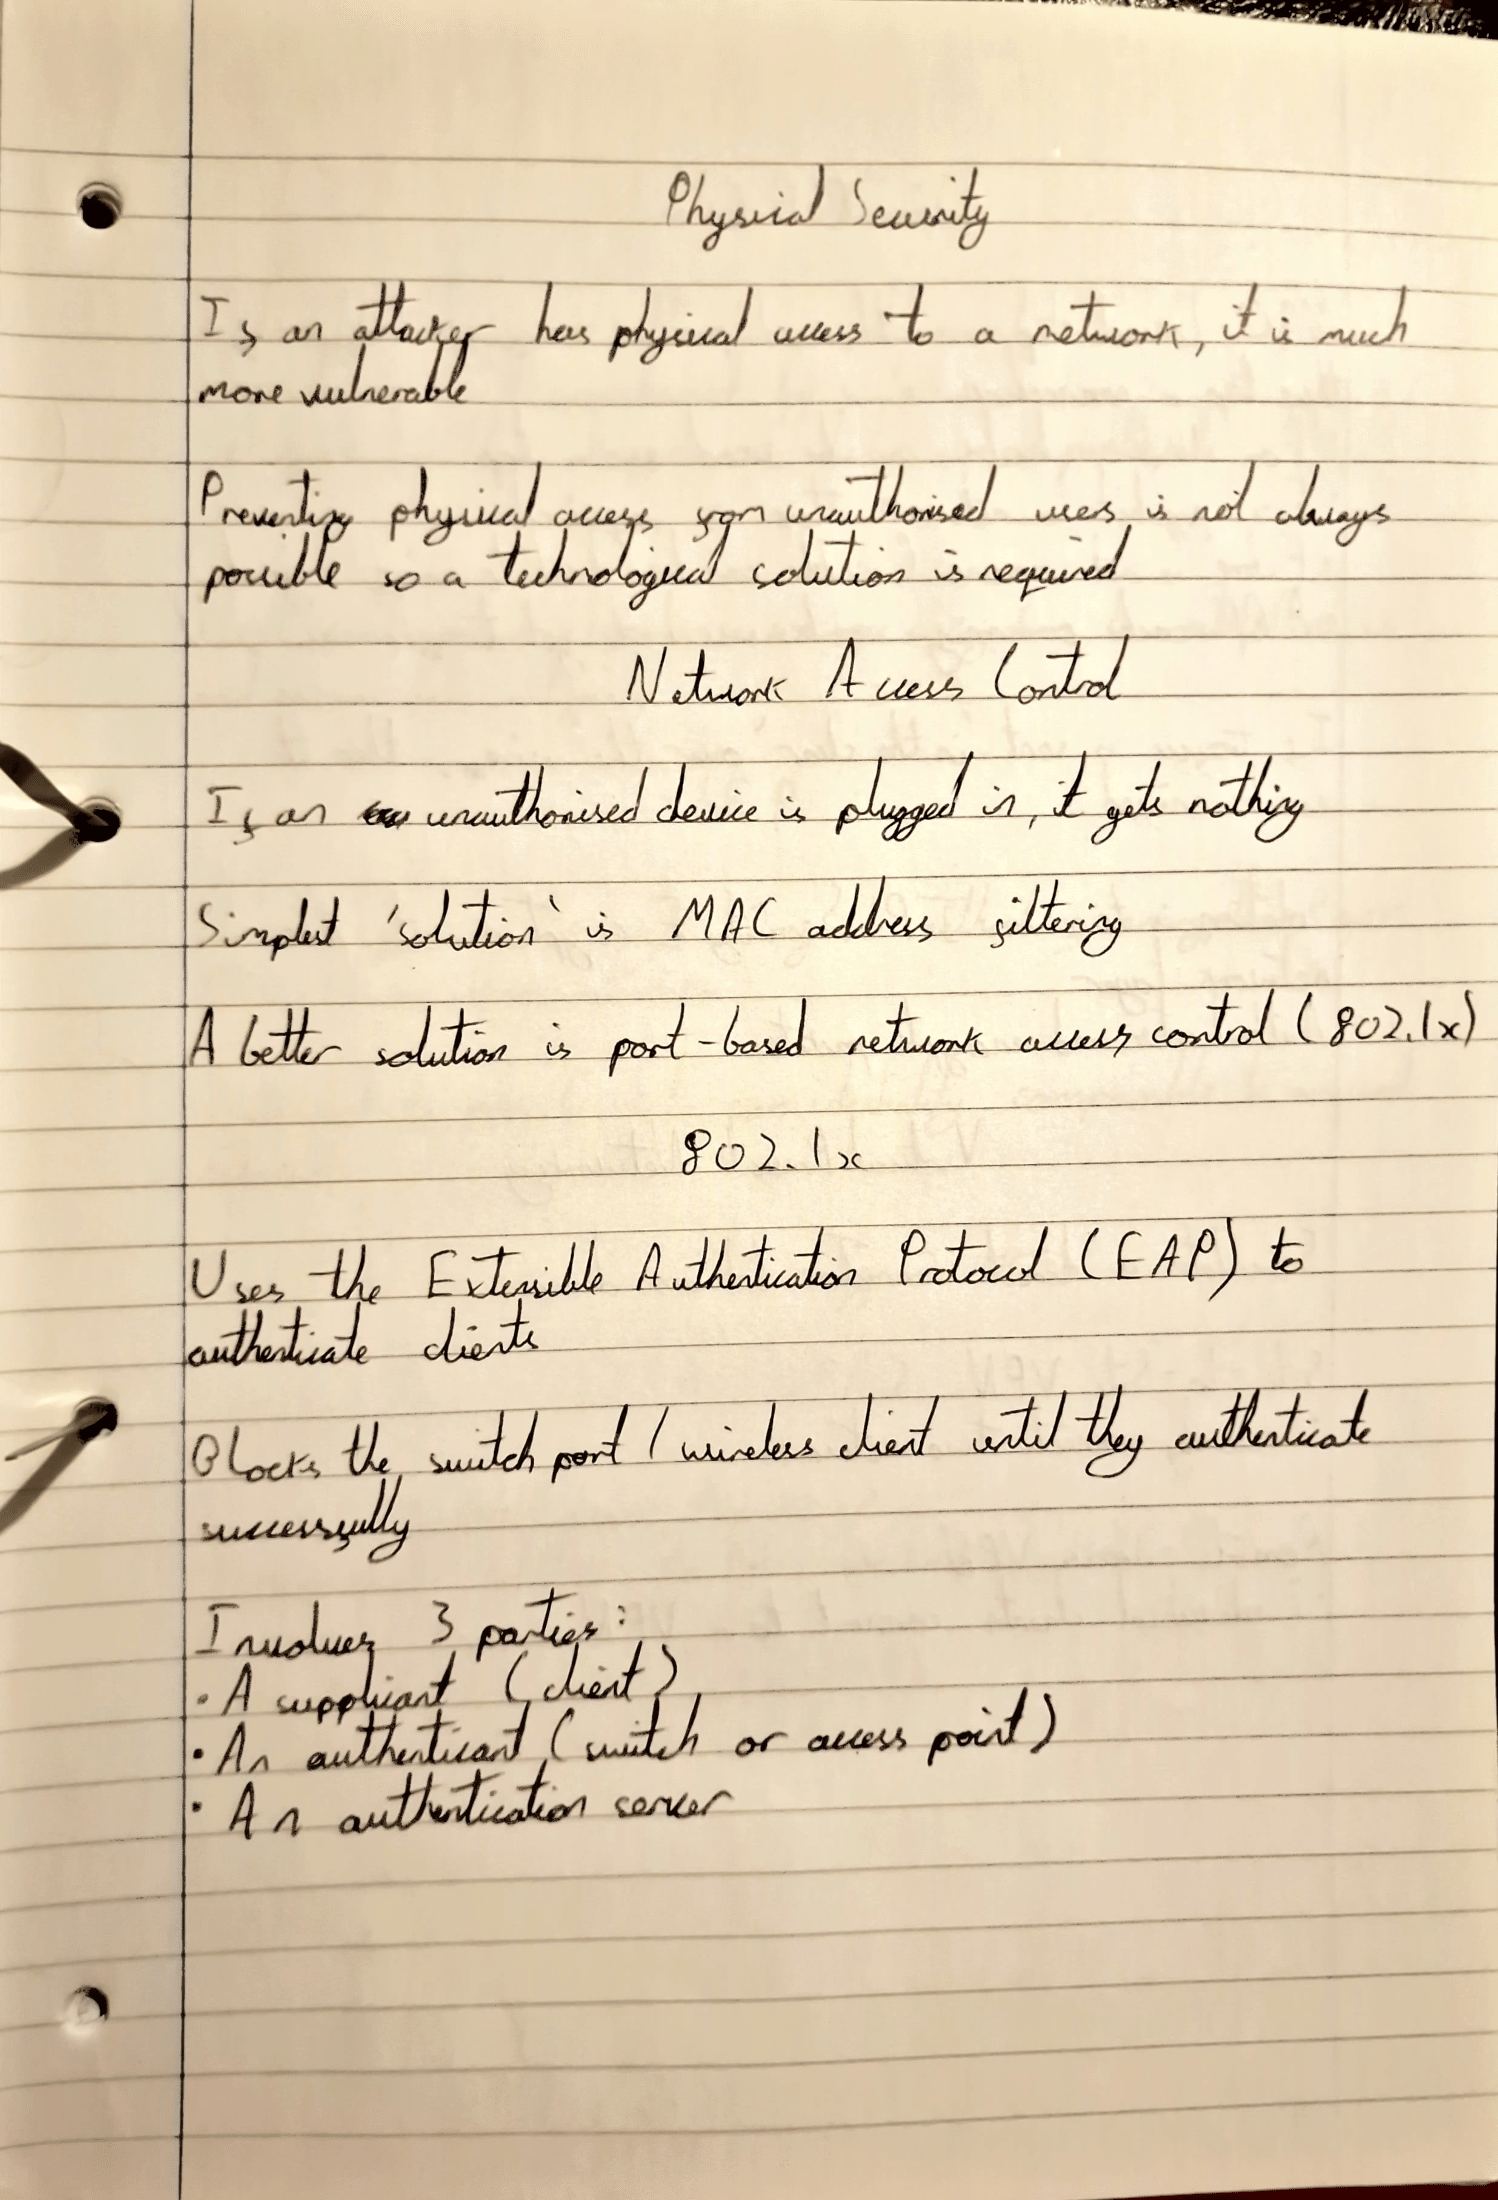 Physical Security
If an attacker has physical access to a network, it is much
more vulnerable
Preventing physical access from unauthorised users is not always
possible so a technological solution is required
Network Access Control
If an unauthorised device is plugged in, it gets nothing
Simplest 'solution' is MAC address filtering
A better solution is port-based network access control (802.1x)
802.1x
Uses the Extensible Authentication Protocol (EAP) to
authenticate clients
Blocks the switch port / wireless client until they authenticate
successfully
Involves 3 parties:
• A supplicant (client)
• An authenticant (switch or access point)
• An authentication server